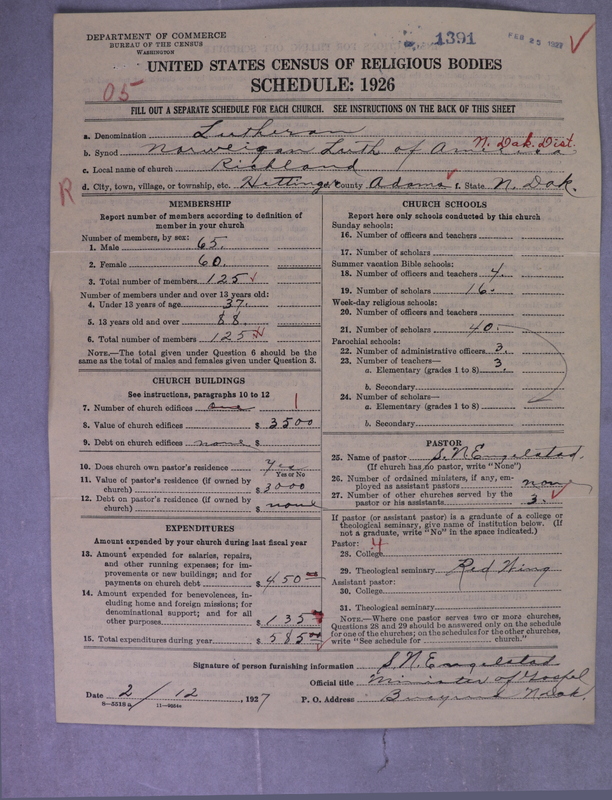 DEPARTMENT OF COMMERCE
BUREAU OF THE CENSUS
WASHINGTON
1391
FEB 25 1927
UNITED STATES CENSUS OF RELIGIOUS BODIES
SCHEDULE: 1926
05
FILL OUT A SEPARATE SCHEDULE FOR EACH CHURCH. SEE INSTRUCTIONS ON THE BACK OF THIS SHEET
a. Denomination Lutheran
b. Synod Norweigan Luth of America N. Dak. Dist.
c. Local name of church Richland
R
d. City, town, village, or township, etc. Hettinger County Adams f. State N. Dak.
MEMBERSHIP
Report number of members according to definition of
member in your church
Number of members, by sex:
1. Male 65.
2. Female 60.
3. Total number of members 125
Number of members under and over 13 years old:
4. Under 13 years of age 37.
5. 13 years old and over 88.
6. Total number of members 125
NOTE.—The total given under Question 6 should be the
same as the total of males and females given under Question 3.
CHURCH BUILDINGS
See instructions, paragraphs 10 to 12
7. Number of church edifices one 1
8. Value of church edifices $ 3500
9. Debt on church edifices none $
10. Does church own pastor's residence Yes
Yes or No
11. Value of pastor's residence (if owned by
church) $ 3000
12. Debt on pastor's residence (if owned by
church) $ none
EXPENDITURES
Amount expended by your church during last fiscal year
13. Amount expended for salaries, repairs,
and other running expenses; for im-
provements or new buildings; and for
payments on church debt $ 450 00
14. Amount expended for benevolences, in-
cluding home and foreign missions; for
denominational support; and for all
other purposes $ 135
15. Total expenditures during year $ 585 00
CHURCH SCHOOLS
Report here only schools conducted by this church
Sunday schools:
16. Number of officers and teachers
17. Number of scholars
Summer vacation Bible schools:
18. Number of officers and teachers 4.
19. Number of scholars 16.
Week-day religious schools:
20. Number of officers and teachers
21. Number of scholars 40.
Parochial schools:
22. Number of administrative officers 3.
23. Number of teachers— 3.
a. Elementary (grades 1 to 8)
b. Secondary
24. Number of scholars—
a. Elementary (grades 1 to 8)
b. Secondary
PASTOR
25. Name of pastor S. N. Engelstad.
(If church has no pastor, write "None")
26. Number of ordained ministers, if any, em-
ployed as assistant pastors none
27. Number of other churches served by the
pastor or his assistants 3.
If pastor (or assistant pastor) is a graduate of a college or
theological seminary, give name of institution below. (If
not a graduate, write "No" in the space indicated.)
Pastor: 4
28. College
29. Theological seminary Red Wing
Assistant pastor:
30. College
31. Theological seminary
NOTE.—Where one pastor serves two or more churches,
Questions 28 and 29 should be answered only on the schedule
for one of the churches; on the schedules for the other churches,
write "See schedule for church."
Signature of person furnishing information S. N. Engelstad
Official title Minister of Gospel
Date 2/12, 1927 P. O. Address N. Dak.
8-5519a 11-9664a